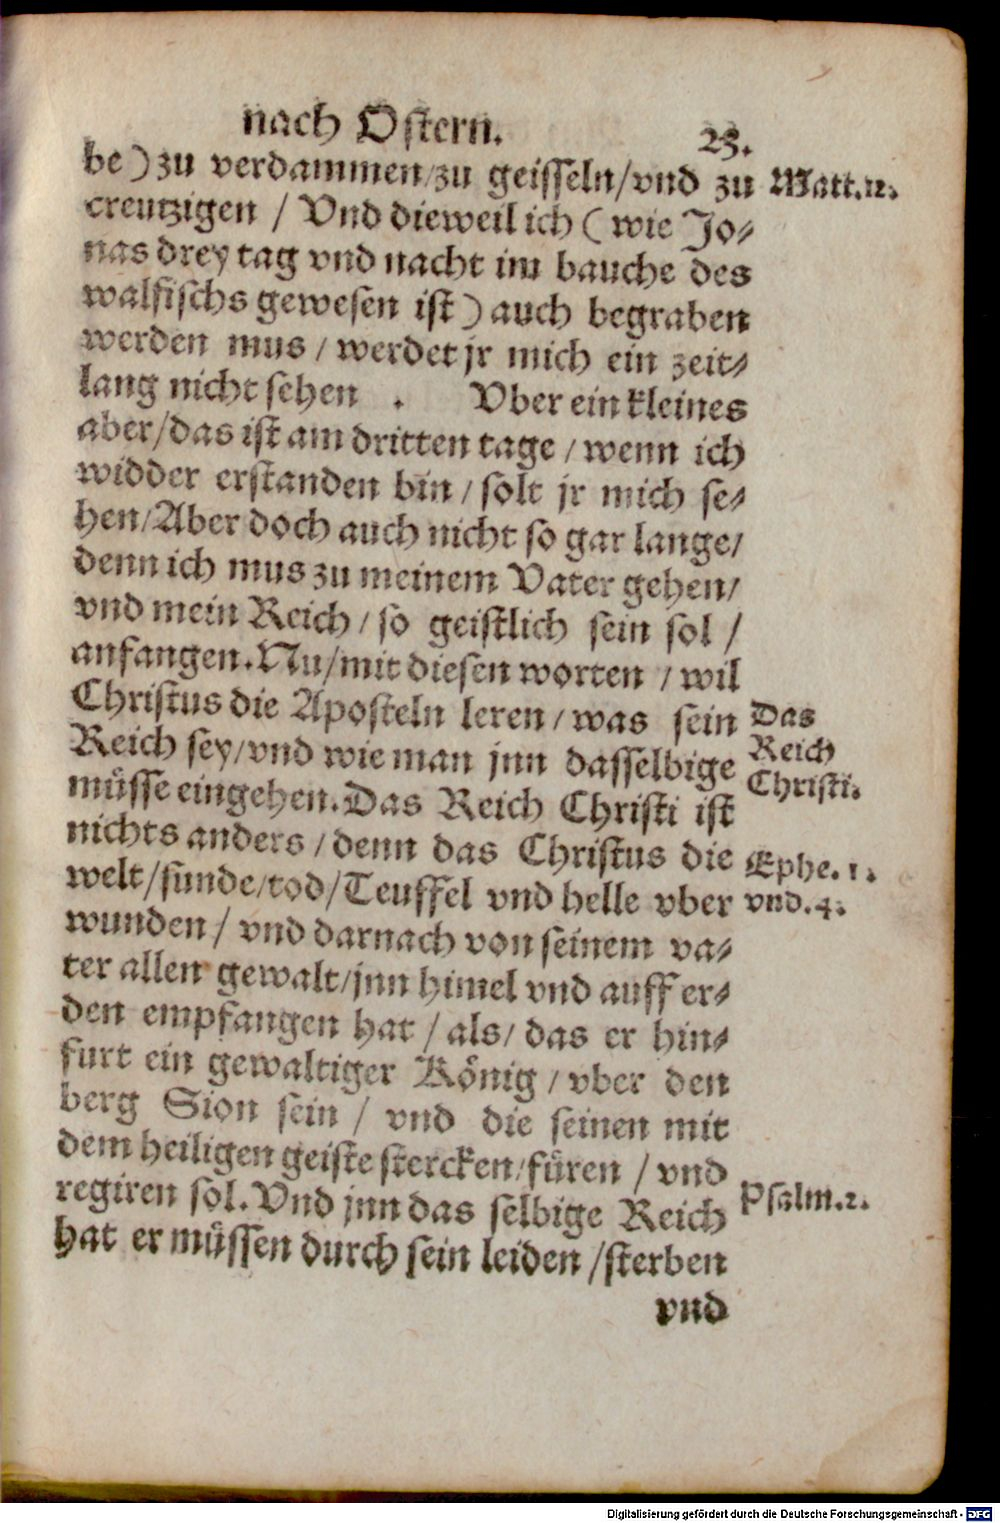 nach Ostern.
23.
be) zu verdammen/zu geisseln/vnd zu
Matt.12.
creutzigen / Vnd dieweil ich ( wie Jo⸗
nas drey tag vnd nacht im bauche des
walfischs gewesen ist ) auch begraben
werden mus / werdet jr mich ein zeit⸗
lang nicht sehen . Vber ein kleines
aber/das ist am dritten tage / wenn ich
widder erstanden bin / solt jr mich se⸗
hen/Aber doch auch nicht so gar lange/
denn ich mus zu meinem Vater gehen/
vnd mein Reich / so geistlich sein sol /
anfangen. Nu/mit diesen worten / wil
Christus die Aposteln leren / was sein
Reich sey/vnd wie man jnn dasselbige
müsse eingehen. Das Reich Christi ist
Das
Reich
Christi.
nichts anders / denn das Christus die
welt/sunde/tod/Teuffel vnd helle vber
Ephe. 1.
vnd.4.
wunden / vnd darnach von seinem va⸗
ter allen gewalt/jnn himel vnd auff er⸗
den empfangen hat / als/ das er hin⸗
furt ein gewaltiger König / vber den
berg Sion sein / vnd die seinen mit
dem heiligen geiste stercken/füren / vnd
regiren sol. Vnd jnn das selbige Reich
Psalm.2.
hat er müssen durch sein leiden /sterben
vnd
Digitalisierung gefördert durch die Deutsche Forschungsgemeinschaft - DFG